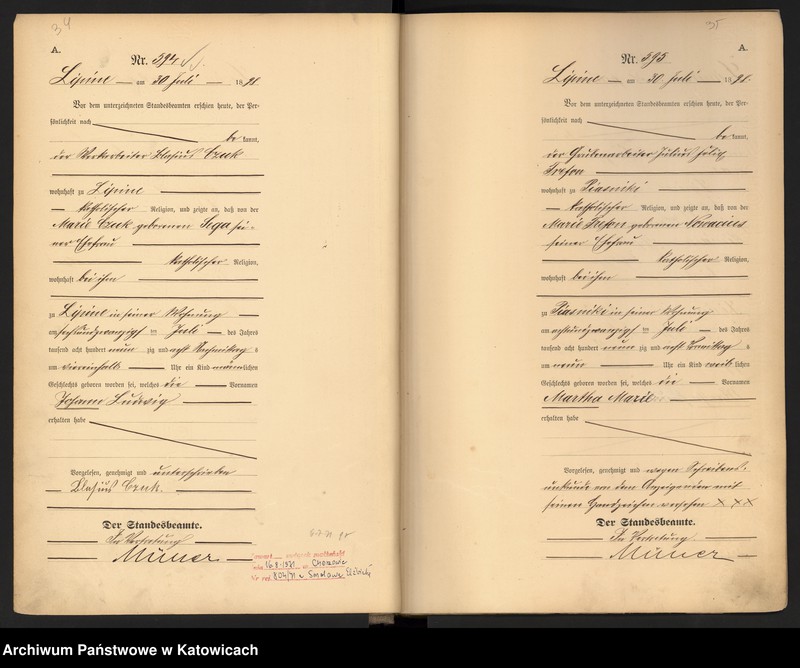 34
A.
Nr. 594
Lipine am 30 Juli 1898.
Vor dem unterzeichneten Standesbeamten erschien heute, der Per-
sönlichkeit nach
be kannt,
der Werkarbeiter Blasius Czuk
wohnhaft zu Lipine
katholischer Religion, und zeigte an, daß von der
Marie Czuk geborenen Sega sei-
ner Ehefrau
katholischer Religion,
wohnhaft bei ihm
zu Lipine in seiner Wohnung
am sechsundzwanzigsten Juli des Jahres
tausend acht hundert neun zig und acht Nachmittag s
um viereinhalb Uhr ein Kind männlichen
Geschlechts geboren worden sei, welches die Vornamen
Johann Ludwig
erhalten habe
Vorgelesen, genehmigt und unterschrieben
Blasius Czuk.
Der Standesbeamte.
In Vertretung
16.8.1971 Chorzowie
804/71
35
A.
Nr. 595
Lipine am 30 Juli 1898.
Vor dem unterzeichneten Standesbeamten erschien heute, der Per-
sönlichkeit nach
be kannt,
der Grubenarbeiter Julius Felix
wohnhaft zu Piasniki
katholischer Religion, und zeigte an, daß von der
seiner Ehefrau
katholischer Religion,
wohnhaft bei ihm
zu Piasniki in seiner Wohnung
am achtundzwanzigsten Juli des Jahres
tausend acht hundert neun zig und acht Vormittag s
um neun Uhr ein Kind weib lichen
Geschlechts geboren worden sei, welches die Vornamen
Martha Marie
erhalten habe
Vorgelesen, genehmigt und wegen Schreibens-
unkunde von dem Anzeigenden mit
seinem Handzeichen versehen X X X
Der Standesbeamte.
In Vertretung
Archiwum Państwowe w Katowicach